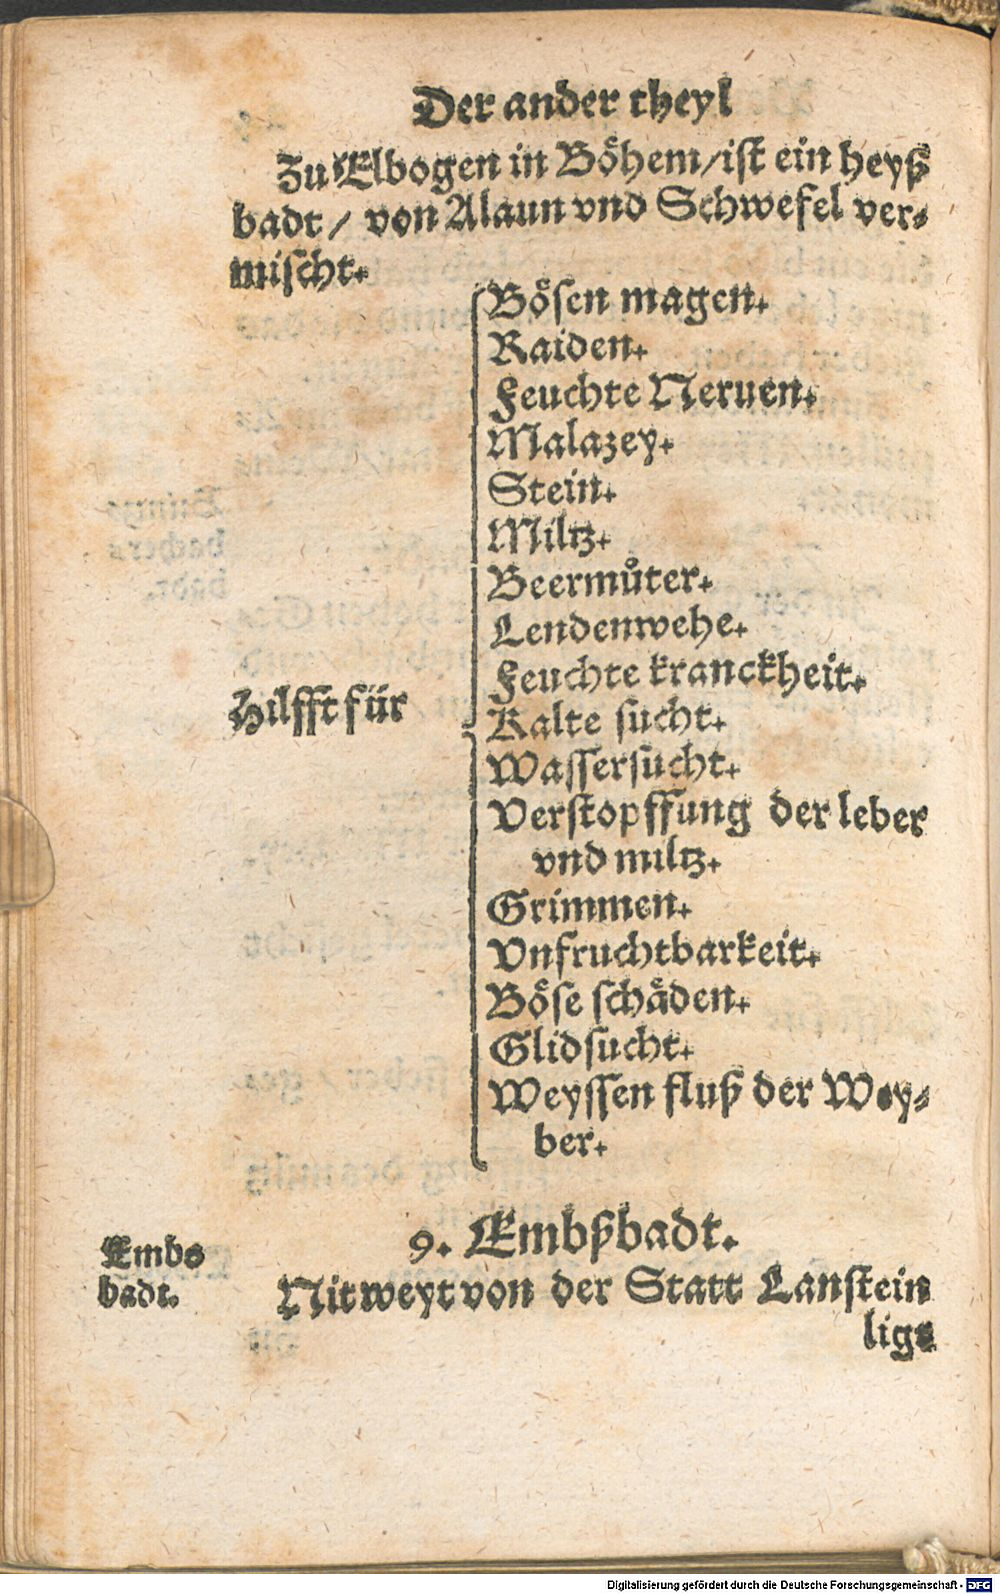 Der ander theyl
Zu Elbogen in Böhem/ist ein heyß
badt / von Alaun vnd Schwefel ver⸗
mischt.
Bösen magen.
Raiden.
Feuchte Neruen.
Malazey.
Stein.
Miltz.
Beermůter.
Lendenwehe.
Feuchte kranckheit.
Hilfft für
Kalte sucht.
Wassersucht.
Verstopffung der leber
vnd miltz.
Grimmen.
Vnfruchtbarkeit.
Böse schäden.
Glidsucht.
Weyssen fluß der Wey⸗
ber.
9. Embßbadt.
Embs
badt.
Nit weyt von der Statt Lanstein
lige
Digitalisierung gefördert durch die Deutsche Forschungsgemeinschaft - DFG